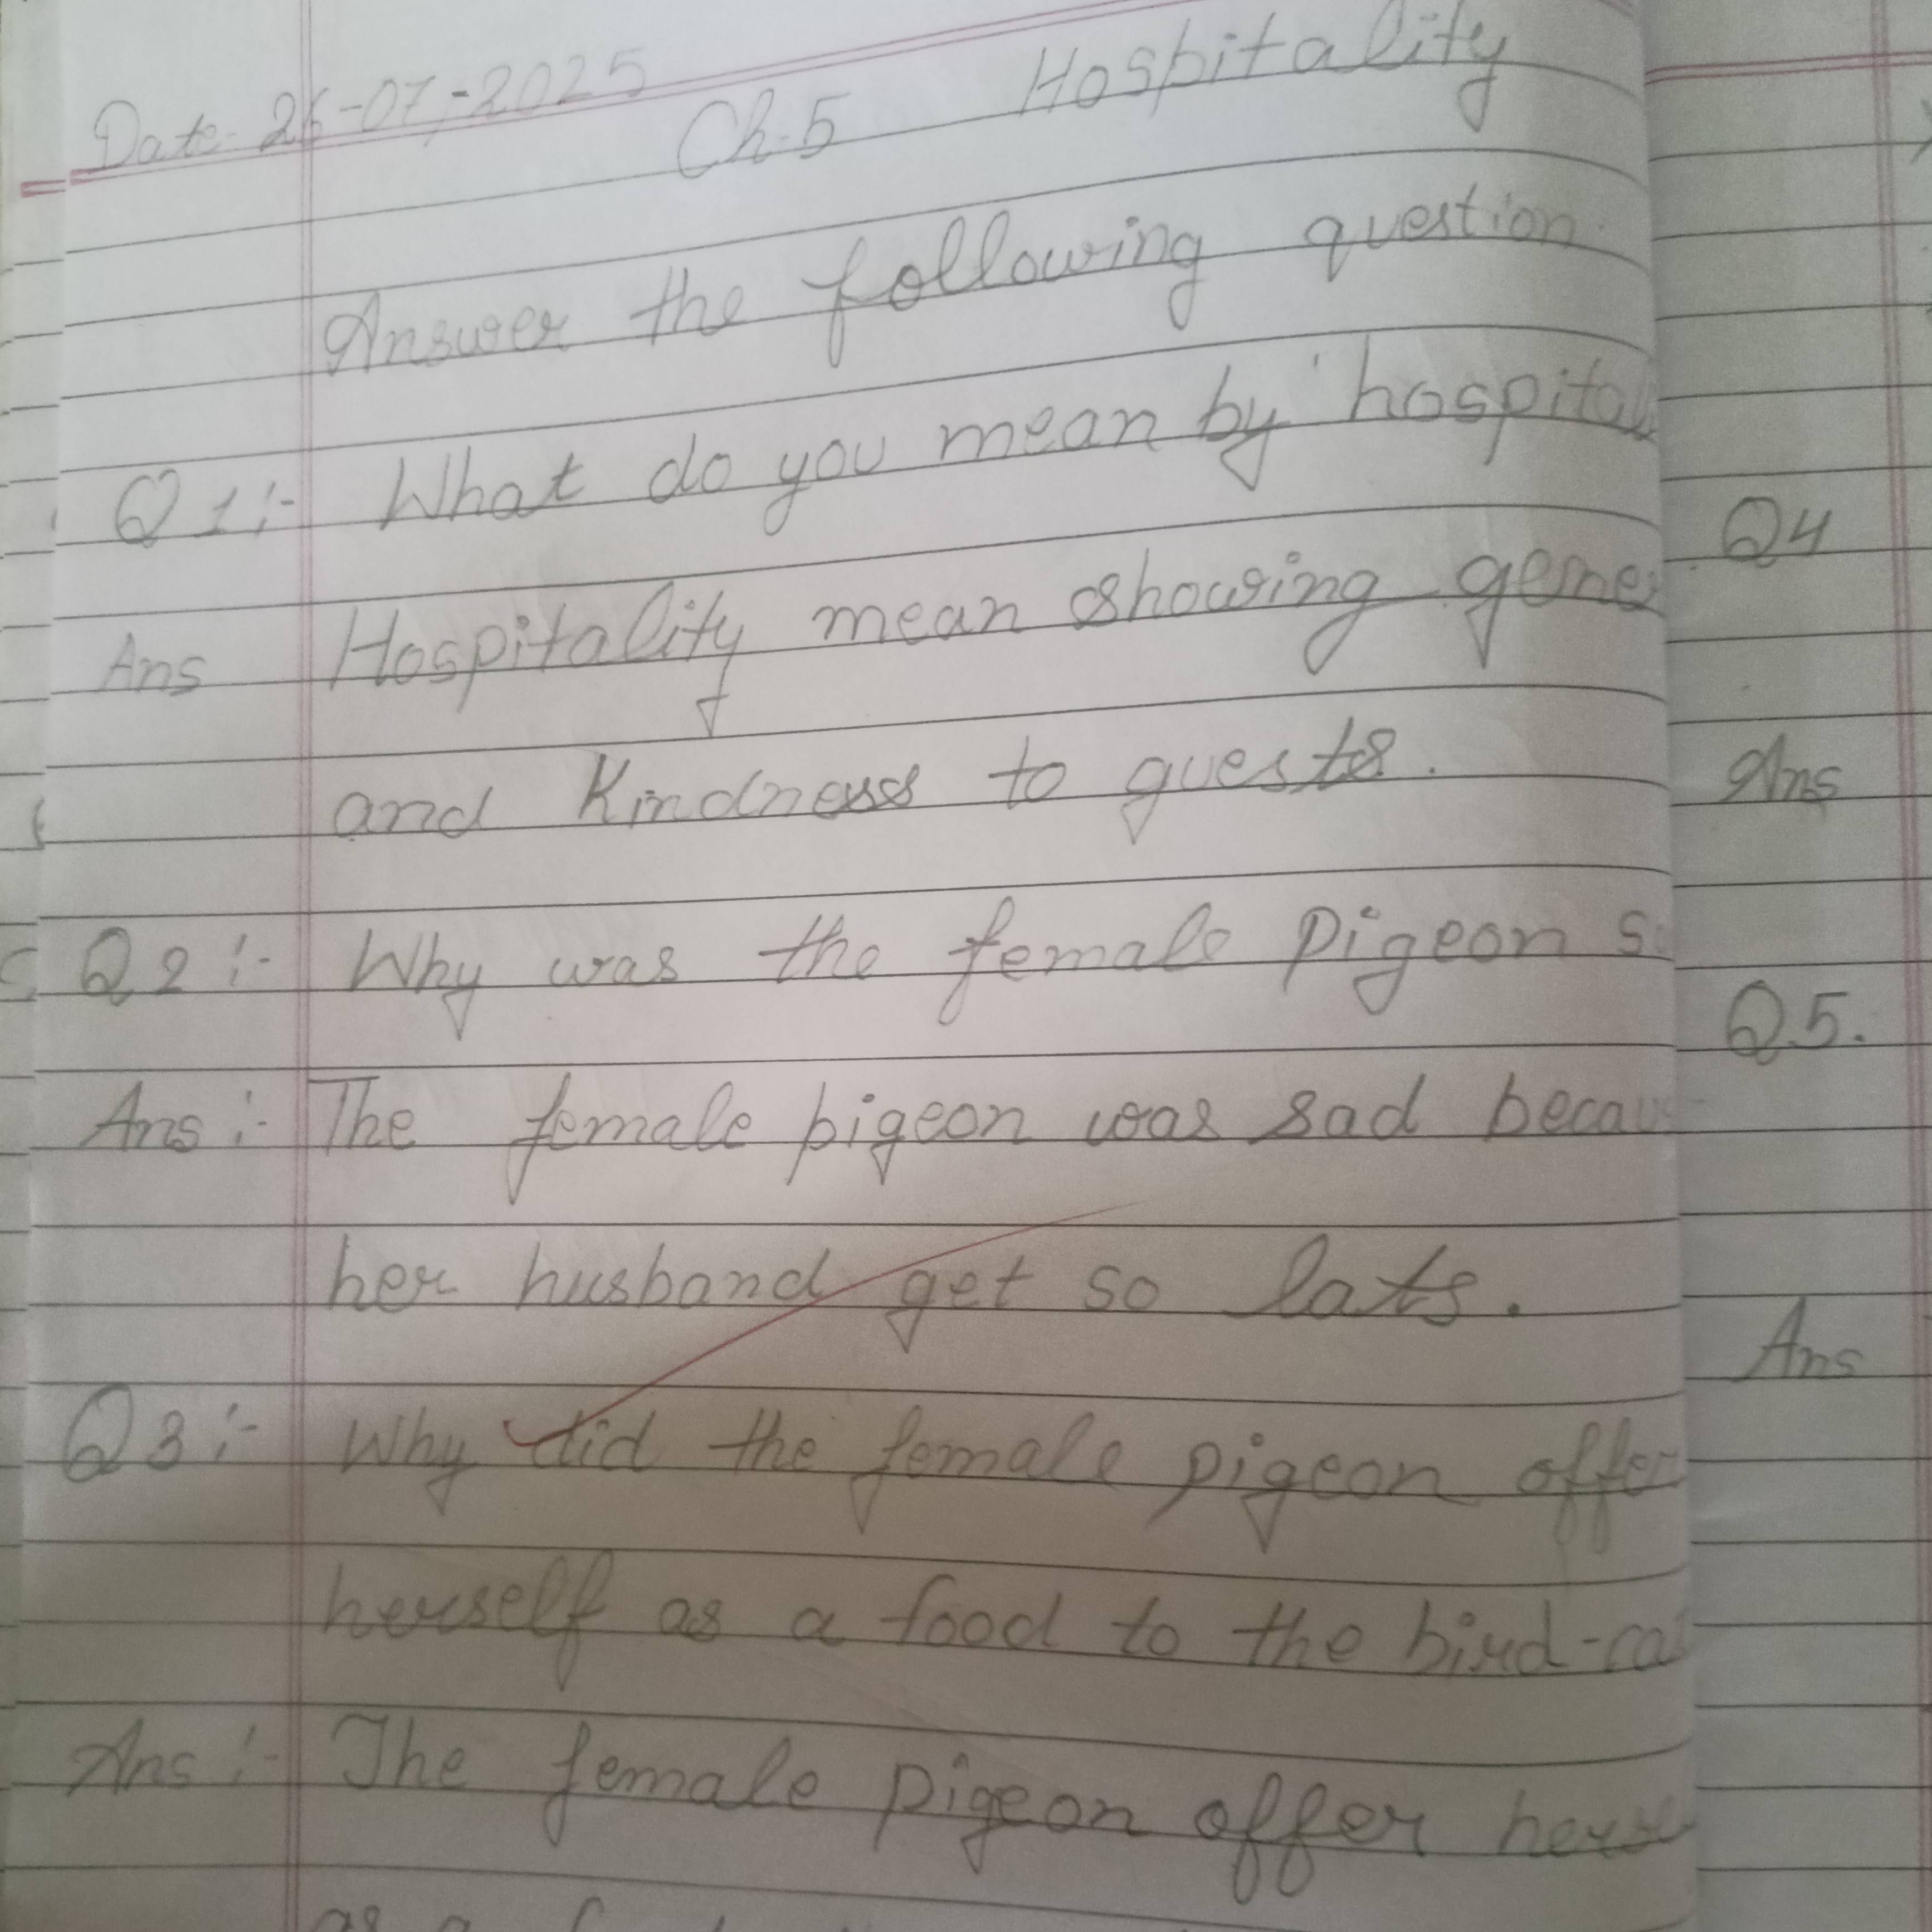 Date- 26-07-2025
Ch-5 Hospitality
Answer the following question.
Q1:- What do you mean by 'hospital
Ans Hospitality mean showing gene
and kindness to guests.
Q2:- Why was the female pigeon s
Ans:- The female pigeon was sad becau
her husband get so late.
Q3:- Why did the female pigeon offer
herself as a food to the bird-ca
Ans:- The female pigeon offer herse
as a
Q4
Ans
Q5.
Ans